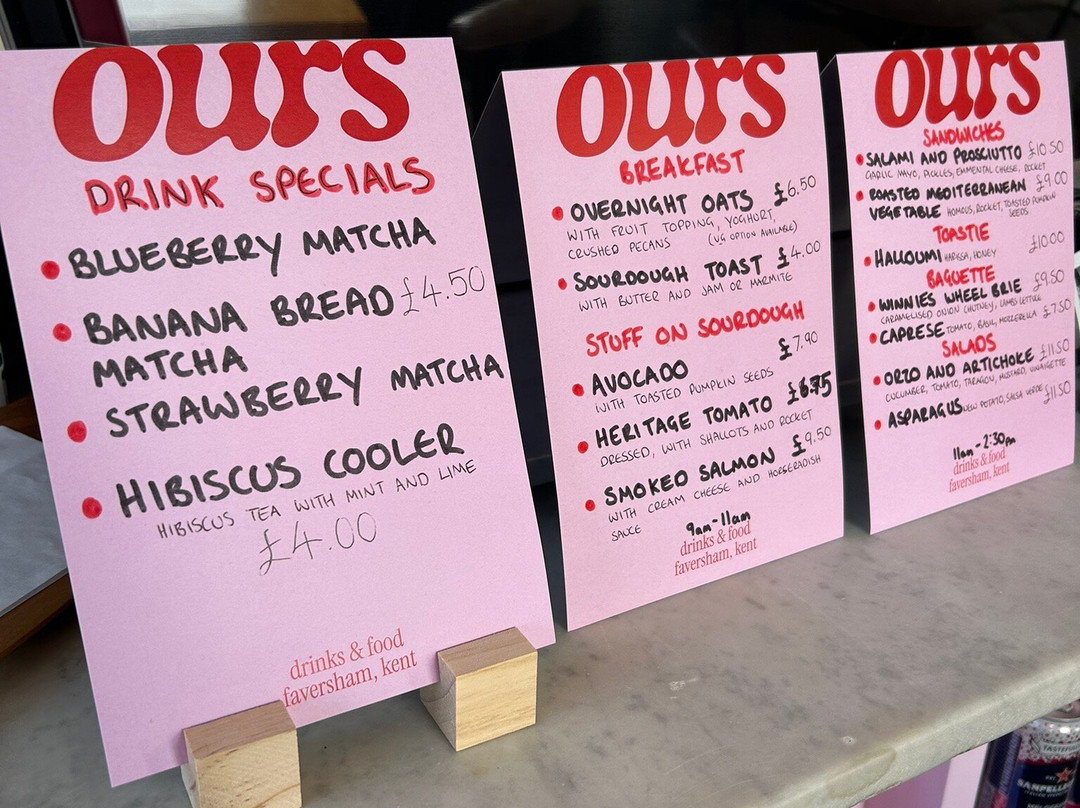 ours
DRINK SPECIALS
BLUEBERRY MATCHA
BANANA BREAD £4.50
MATCHA
STRAWBERRY MATCHA
HIBISCUS COOLER
HIBISCUS TEA WITH MINT AND LIME
£4.00
drinks & food
faversham, kent
ours
BREAKFAST
OVERNIGHT OATS £6.50
WITH FRUIT TOPPING, YOGHURT,
CRUSHED PECANS (VG OPTION AVAILABLE)
SOURDOUGH TOAST £4.00
WITH BUTTER AND JAM OR MARMITE
STUFF ON SOURDOUGH
AVOCADO £7.90
WITH TOASTED PUMPKIN SEEDS
HERITAGE TOMATO £6.75
DRESSED, WITH SHALLOTS AND ROCKET
SMOKED SALMON £9.50
WITH CREAM CHEESE AND HORSERADISH
SAUCE
9am-11am
drinks & food
faversham, kent
ours
SANDWICHES
SALAMI AND PROSCIUTTO £10.50
GARLIC MAYO, PICKLES, EMMENTAL CHEESE, ROCKET
ROASTED MEDITERRANEAN £9.00
VEGETABLE HOMOUS, ROCKET, TOASTED PUMPKIN
SEEDS
TOASTIE
HALLOUMI HARISSA, HONEY £10.00
BAGUETTE
WINNIES WHEEL BRIE £9.50
CARAMELISED ONION CHUTNEY, LAMBS LETTUCE
CAPRESE TOMATO, BASIL, MOZZERELLA £7.50
SALADS
ORZO AND ARTICHOKE £11.50
CUCUMBER, TOMATO, TARAGON, MUSTARD, VINAIGRETTE
ASPARAGUS NEW POTATO, SALSA VERDE £11.50
11am-2:30pm
drinks & food
faversham, kent
SANPELLE